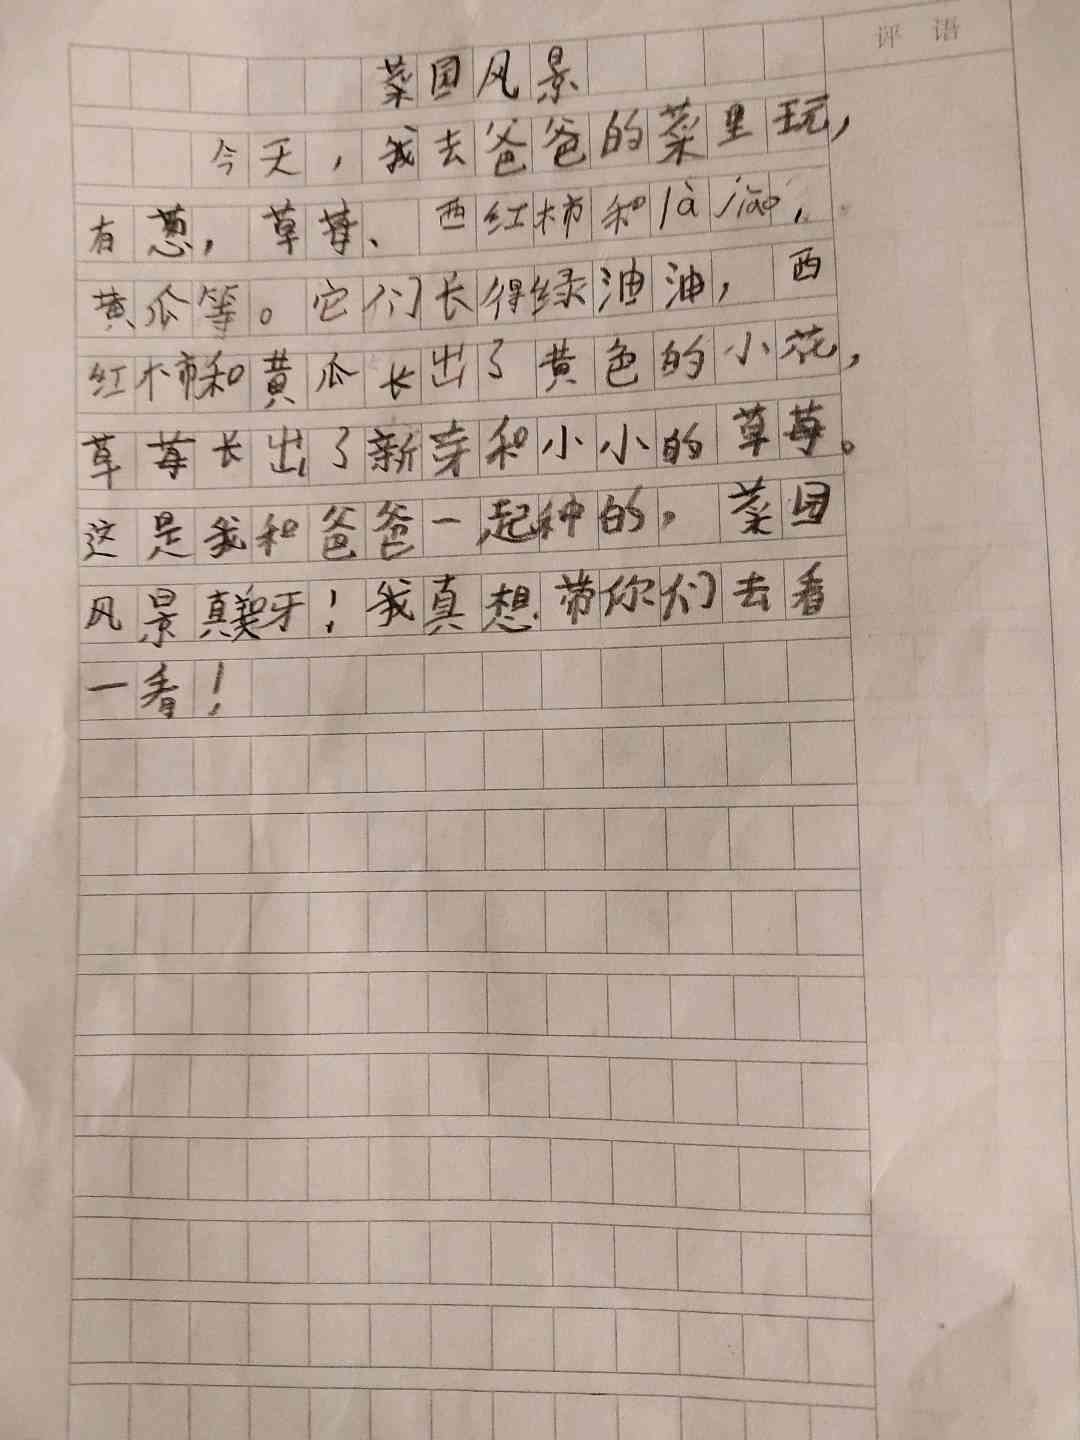 评语
菜园风景
今天，我去爸爸的菜里玩，
有葱，草莓、西红柿和là jiāo，
黄瓜等。它们长得绿油油，西
红柿和黄瓜长出了黄色的小花，
草莓长出了新芽和小小的草莓。
这是我和爸爸一起种的，菜园
风景真美牙！我真想带你们去看
一看！